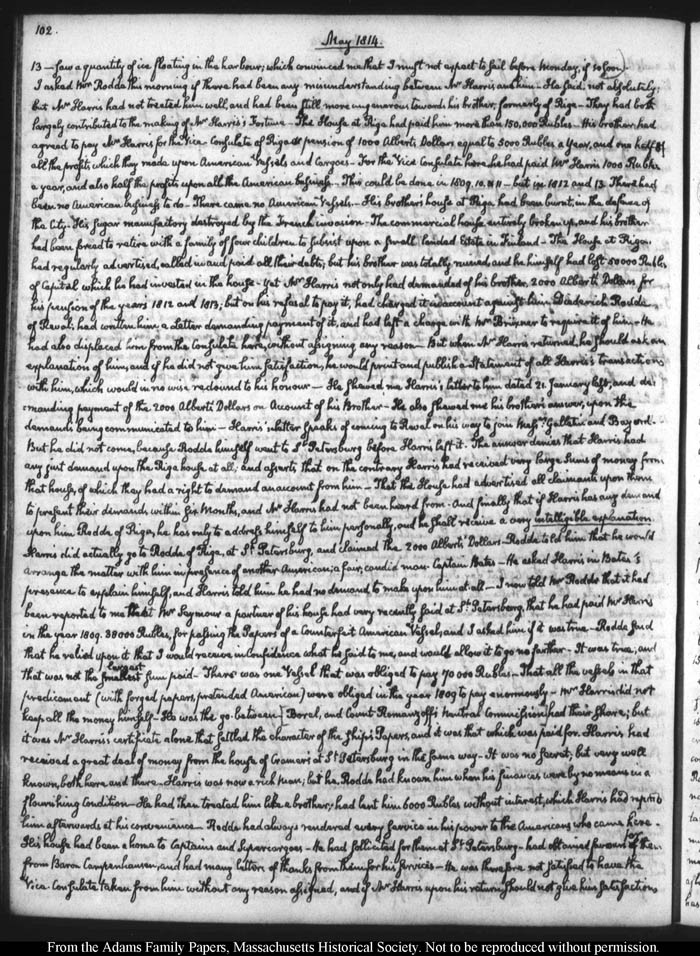 102.
May 1814.
13 — saw a quantity of ice floating in the harbour; which convinced me that I must not expect to sail before Monday, if so soon
I asked Mr Rodde this morning if there had been any misunderstanding between Mr Harris and him — He said, not absolutely;
but Mr Harris had not treated him well, and had been still more ungenerous towards his brother, formerly of Riga — They had both
largely contributed to the making of Mr Harris's Fortune — The House at Riga had paid him more than 150,000 Rubles — His brother had
agreed to pay Mr Harris for the Vice-Consulate of Riga a pension of 1000 Alberts Dollars equal to 5000 Rubles a Year, and one half of
all the profits which they made upon American Vessels and Cargoes — For the Vice Consulate here he had paid Mr Harris 1000 Rubles
a year, and also half the profits upon all the American business — This could be done in 1809. 10. & 11 — but in 1812 and 13. There had
been no American business to do — There came no American Vessels. — His brother's house at Riga had been burnt, in the defence of
the City — His Sugar manufactory destroyed by the French invasion — The commercial house entirely broken up, and his brother
had been forced to retire with a family of four children to subsist upon a small landed Estate in Finland — The House at Riga
had regularly advertised, called in and paid all their debts; but his brother was totally ruined, and he himself had lost 50000 Rubles
of Capital which he had invested in the house — Yet Mr Harris not only had demanded of his brother, 2000 Alberts Dollars for
his pension of the years 1812 and 1813; but on his refusal to pay it, had charged it in account against him Diederick Rodde
of Reval; had written him a Letter demanding payment of it, and had left a charge with Mr to require it of him — He
had also displaced him from the Consulate here, without assigning any reason — But when Mr Harris returned, he should ask an
explanation of him, and if he did not give him satisfaction, he would print and publish a Statement of all Harris's transactions
with him, which would in no wise redound to his honour — He shewed me Harris's letter to him dated 21. January last, and de-
manding payment of the 2000 Alberts Dollars on Account of his Brother — He also shewed me his brother's answer, upon the
demand being communicated to him — Harris's letter speaks of coming to Reval on his way to join Messrs Gallatin and Bayard.
But he did not come, because Rodde himself went to St Petersburg before Harris left it. The answer denies that Harris had
any just demand upon the Riga house at all; and asserts that on the contrary Harris had received very large sums of money from
that house, of which they had a right to demand an account from him — That the House had advertised all claimants upon them
to present their demands within six Months, and Mr Harris had not been heard from — And finally that if Harris has any demand
upon him Rodde of Riga, he has only to address himself to him personally, and he shall receive a very intelligible explanation.
Harris did actually go to Rodde of Riga, at St Petersburg, and claimed the 2000 Alberts Dollars — Rodde told him that he would
arrange the matter with him in presence of another American; a fair, candid man. Captain Bates — He asked Harris in Bates's
presence to explain himself, and Harris told him he had no demand to make upon him at all — I now told Mr Rodde that it had
been reported to me that Mr Seymour a partner of his house had very recently said at St Petersburg, that he had paid Mr Harris
in the year 1809. 38000 Rubles, for passing the Papers of a Counterfeit American Vessel; and I asked him if it was true — Rodde said
that he relied upon it that I would receive in confidence what he said to me, and would allow it to go no farther — It was true; and
largest
that was not the smallest sum paid — There was one Vessel that was obliged to pay 70 000 Rubles — That all the vessels in that
predicament (with forged papers, pretended American) were obliged in the year 1809 to pay enormously — Mr Harris did not
keep all the money himself — He was the go-between Borel, and Count Romanzoff's Neutral Commission had their share; but
it was Mr Harris's certificate alone that settled the character of the ship's Papers, and it was that which was paid for. Harris had
received a great deal of money from the house of Cramers at St Petersburg in the same way — It was no secret; but very well
known, both here and there — Harris was now a rich man; but he Rodde had known him when his finances were by no means in a
flourishing condition — He had then treated him like a brother; had lent him 6000 Rubles without interest, which Harris had repaid
him afterwards at his convenience — Rodde had always rendered every service in his power to the Americans who came here
for
His house had been a home to Captains and Supercargoes — He had sollicited for them at St Petersburg — had obtained favours them
from Baron Campenhausen, and had many letters of thanks from them for his services — He was therefore not satisfied to have the
Vice-Consulate taken from him without any reason assigned, and if Mr Harris upon his return should not give him satisfaction
From the Adams Family Papers, Massachusetts Historical Society. Not to be reproduced without permission.